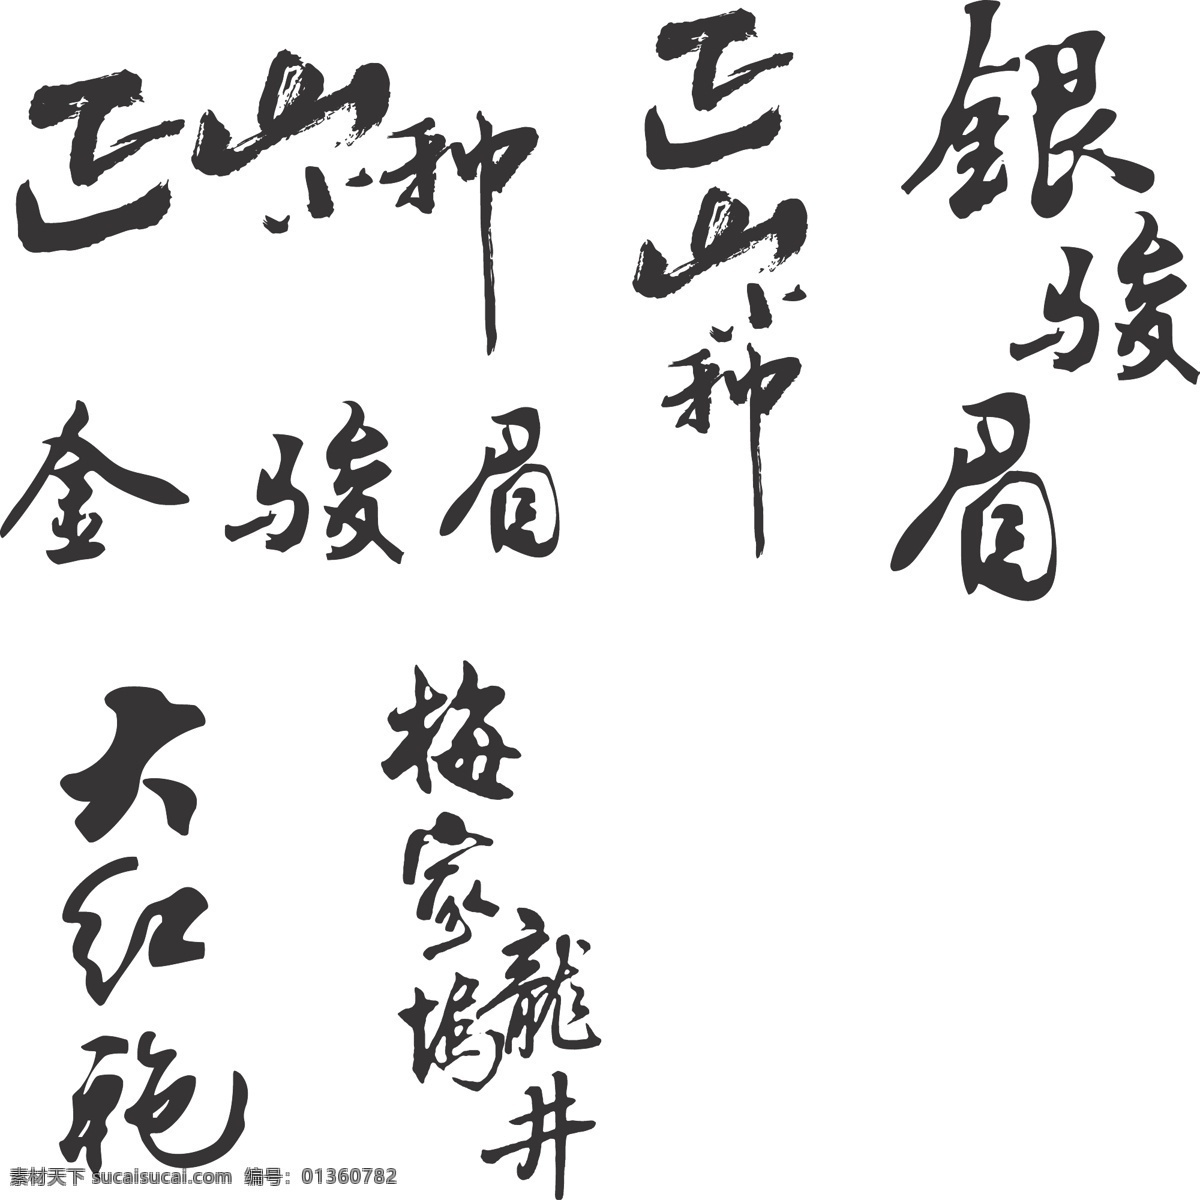 正山小种
正山小种
銀骏眉
金骏眉
大红袍
梅家坞
龍井
素材天下 sucaisucai.com 编号：01360782